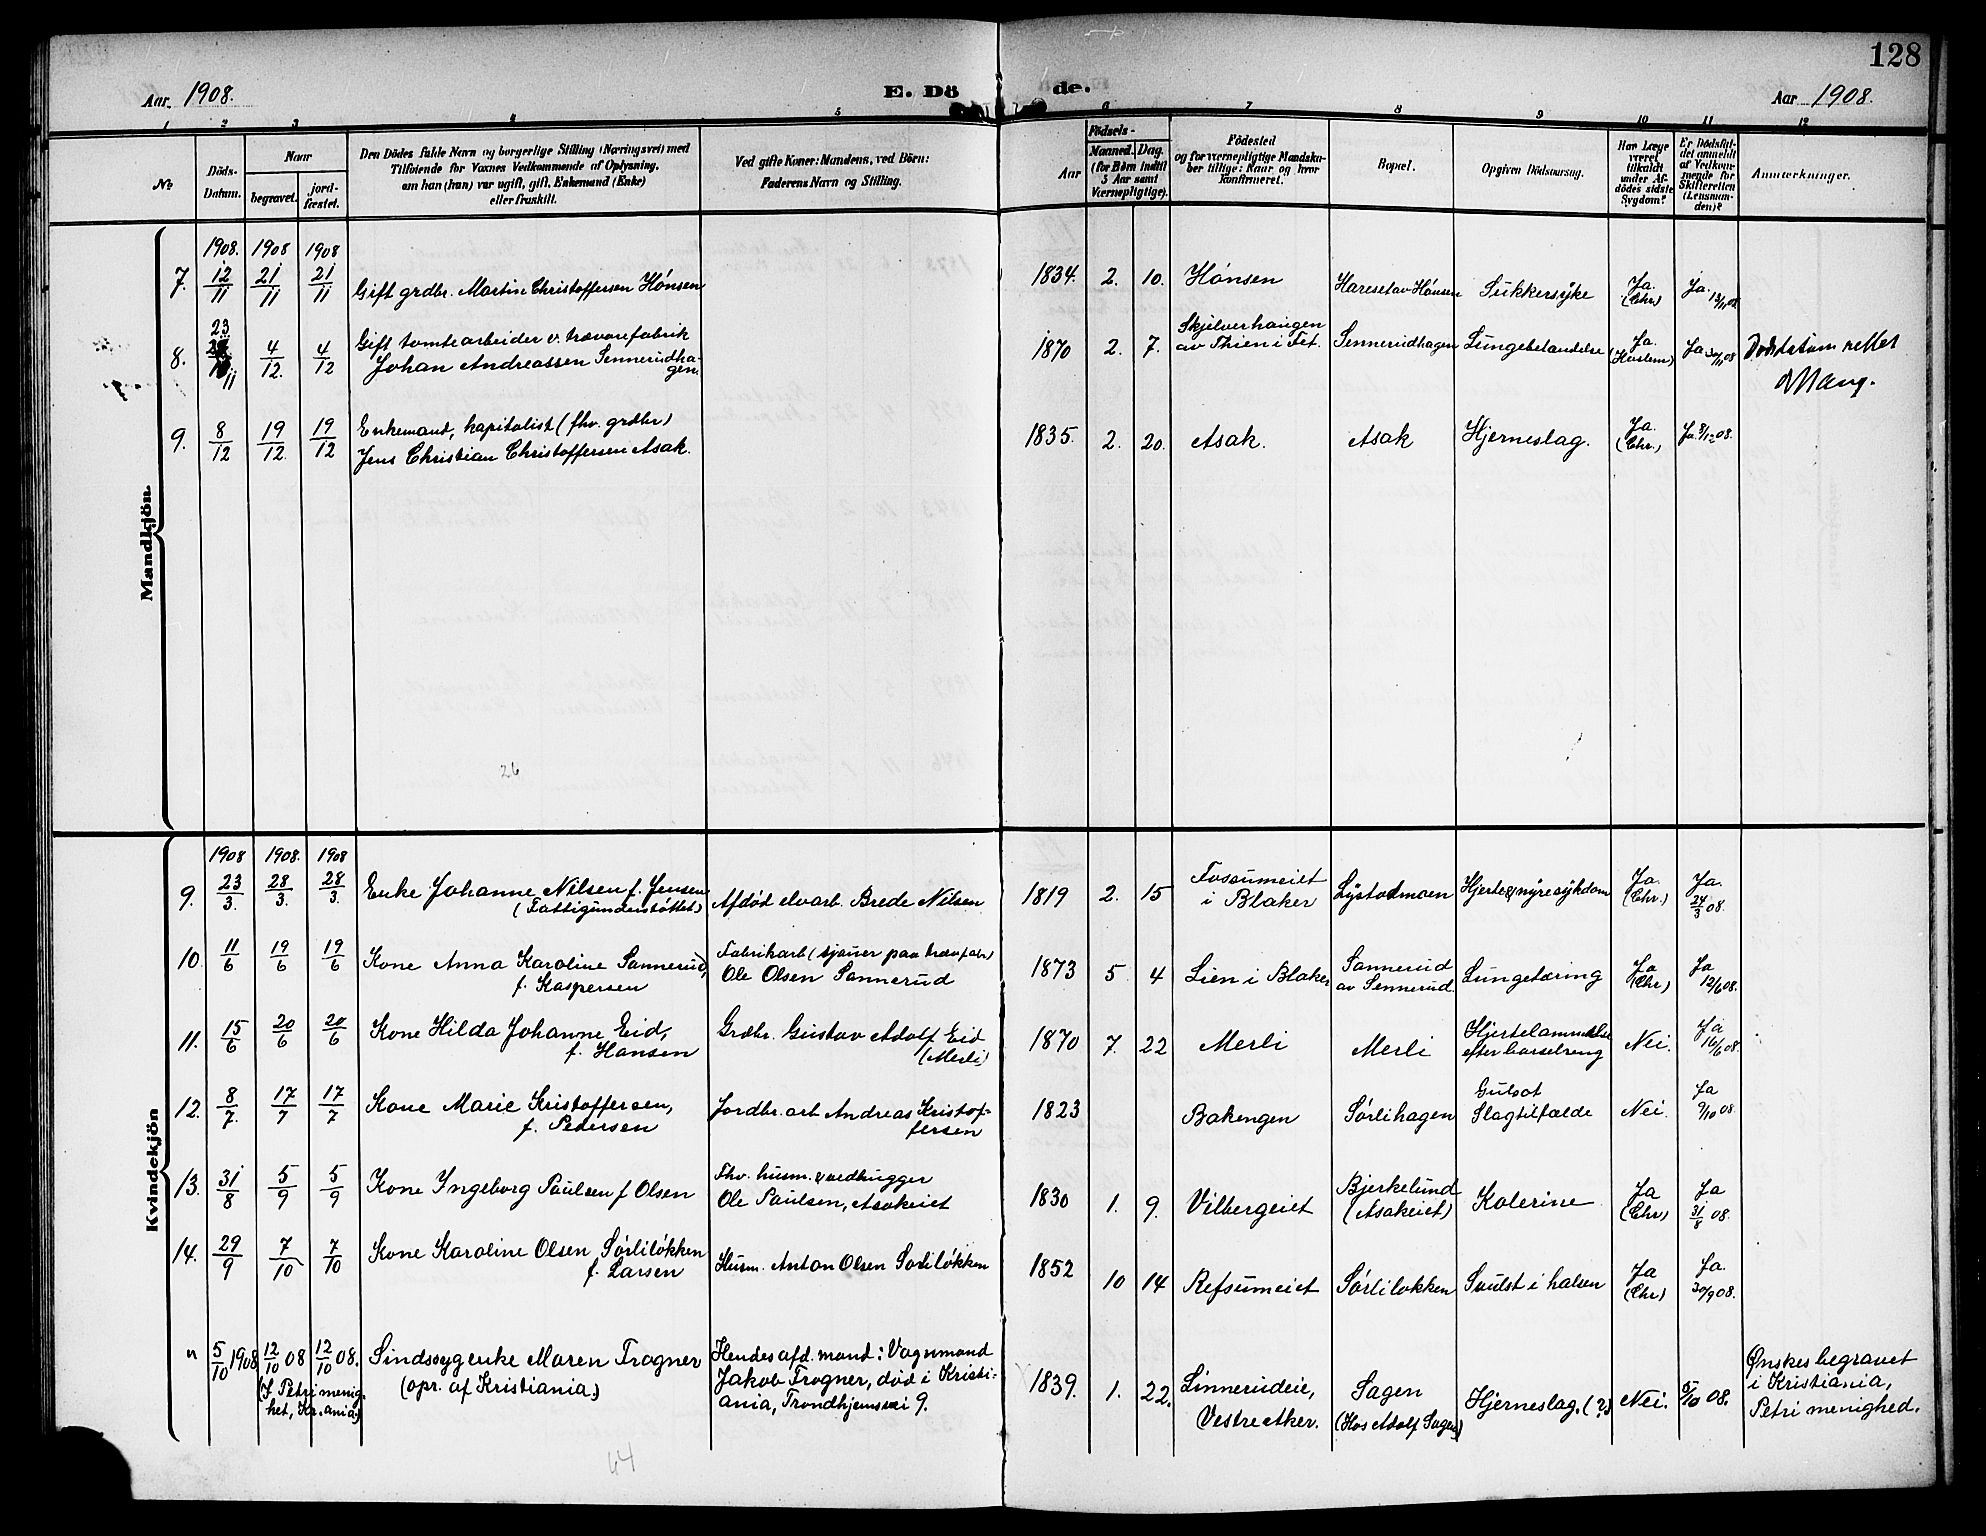 128
Aar 1908.
E. Dö de.
Aar 1908.
1 2 3 4 5 6 7 8 9 10 11 12
No
Döds-
Datum.
Naar
begravet.
jord-
fæstet.
Den Dödes fulde Navn og borgerlige Stilling (Næringsvei) med
Tilföiende for Voxnes Vedkommende af Oplysning,
om han (hun) var ugift, gift, Enkemand (Enke)
eller fraskilt.
Ved gifte Koner: Mandens, ved Börn:
Faderens Navn og Stilling.
Aar
Födsels-
Maaned. Dag.
(for Börn indtil
5 Aar samt
Værnepligtige).
Födested
og for værnepligtige Mandska-
ber tillige: Naar og hvor
konfirmeret.
Bopæl.
Opgiven Dödsaarsag.
Har Læge
været
tilkaldt
under Af-
dödes sidste
Sygdom?
Er Dödsfal-
det anmeldt
af Vedkom-
mende for
Skifteretten
(Lensman-
den)?
Anmærkninger.
Mandkjön.
1908. 1908 1908
7. 12/11 21/11 21/11 Gift grdbr. Martin Christoffersen Hónsen 1834. 2. 10. Hónsen Haresetav Hónsen Sukkersÿke Ja. (Chr) Ja. 13/11 08
8. 23/11 4/12. 4/12 Gift tomtearbeider v. trævarefabrik
Johan Andreassen Sennerudha-
gen. 1870 2. 7. Skjulverhaugen
av Thien i Fet. Sennerudhagen Lungebetændelse Ja. Ja 30/11 08 Dødsdatum rettet
9. 8/12 19/12. 19/12 Enkemand, kapitalist (fhv. grdbr)
Jens Christian Christoffersen Asak. 1835. 2. 20. Asak. Asak Hjerneslag. Ja. (Chr.) Ja. 8/12 08.
26
Kvindekjön
1908 1908. 1908
9. 23/3. 28/3. 28/3. Enke Johanne Nilsen f. Jensen
(Fattigunderstóttet) Afdød elvarb. Brede Nilsen 1819 2. 15 Fossumeiet
i Blaker Lystadmoen Hjerte & nyresykdom Ja. (Chr.) Ja. 24/3 08.
10. 11/6 19/6 19/6 Kone Anna Karoline Sannerud,
f. Kaspersen Fabrikarb (sjauer paa trævfabr)
Ole Olsen Sannerud 1873 5 4 Lien i Blaker Sannerud
av Sennerud. Lungetæring Ja (Chr) Ja 12/6 08.
11. 15/6 20/6 20/6 Kone Hilda Johanne Eid,
f. Hansen Grdbr. Gustav Adolf Eid
(Merli) 1870 7. 22 Merli Merli Hjertelammelse
efter barselseng Nei. Ja 16/6 08.
12. 8/7. 17/7 17/7 Kone Marie Kristoffersen,
f. Pedersen Jordbr. arb Andreas Kristof-
fersen 1823 Bakengen Sórlihagen Gulsot
Slagtilfælde Nei. Ja 9/10 08.
13. 31/8 5/9 5/9 Kone Ingeborg Paulsen f Olsen Fhv. husm. & vedhugger
Ole Paulsen, Asakeiet 1830 1. 9. Vilbergeiet Bjerkelund
(Asakeiet) Kolerine Ja (Chr) Ja 31/8 08.
14. 29/9 7/10 7/10 Kone Karoline Olsen Sórlilókken
f. Larsen Husm. Anton Olsen Sorlilókken 1852 10 14 Refsumeiet Sórlilokken Svulst i halsen Ja (Chr) Ja. 30/9 08.
" 5/10 1908 12/10 08 12/10 08. Sindssyg enke Maren Trogner
(opr. af Kristiania)
(I Petri menig-
het, Kr.ania) Hendes afd. mand: Vognmand
Jakob Trogner, død i Kristi-
ania, Trondhjemsvei 9. 1839. 1. 22. Linnerudeie,
Vestre Aker. Sagen
(Hos Adolf Sagen) Hjerneslag. (?) Nei. 5/10 08. Ønskes begravet
i Kristiania,
Petri menighed.
64